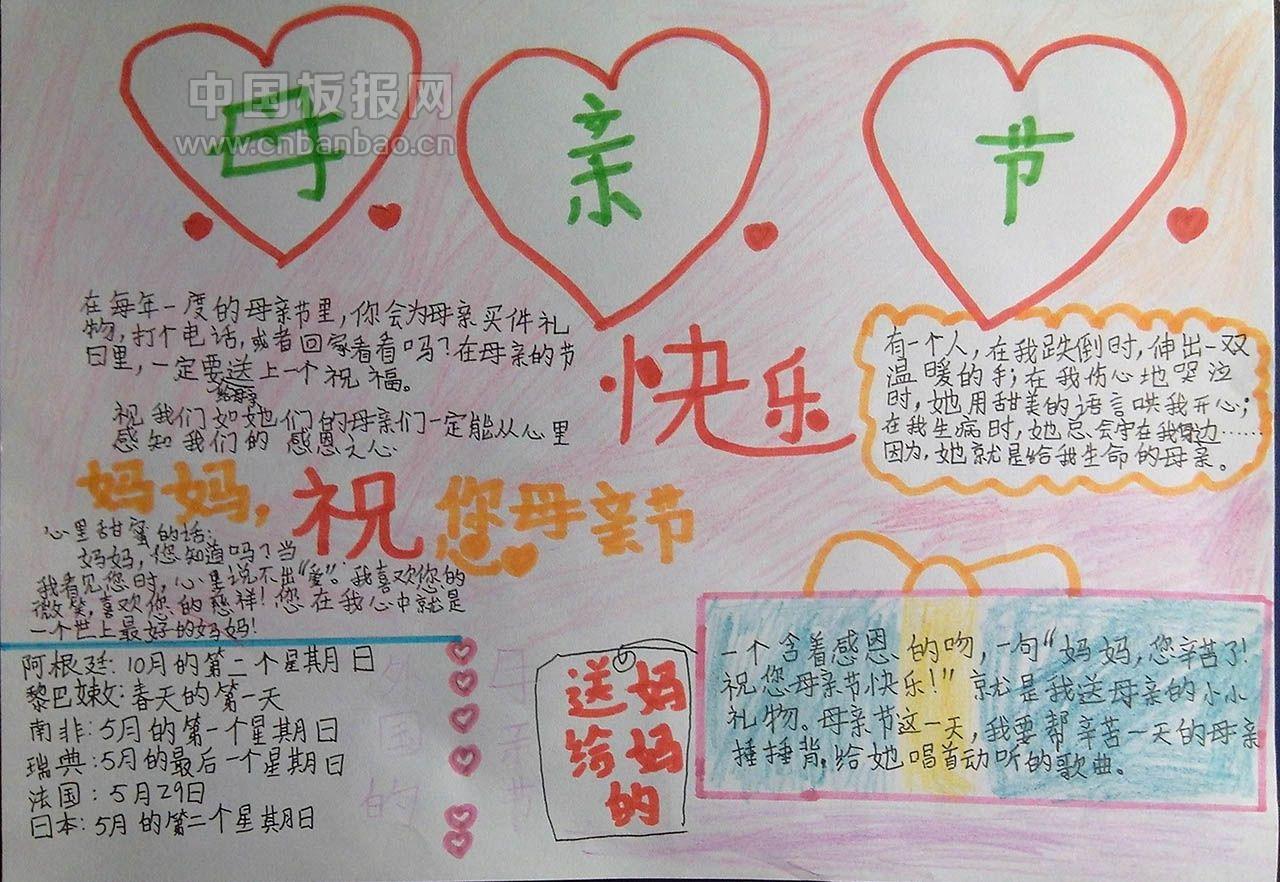 中国板报网
www.cnbanbao.cn
母 亲 节
快乐
在每年一度的母亲节里,你会为母亲买件礼
物,打个电话,或者回家看看吗?在母亲的节
日里,一定要送给母亲上一个祝福。
祝我们如她们的母亲们一定能从心里
感知我们的感恩之心
有一个人,在我跌倒时,伸出一双
温暖的手;在我伤心地哭泣
时,她用甜美的语言哄我开心;
在我生病时,她总会守在我身边……
因为,她就是给我生命的母亲。
妈妈,祝您母亲节
心里甜蜜的话:
妈妈,您知道吗?当
我看见您时,心里说不出"爱"。我喜欢您的
微笑,喜欢您的慈祥!您在我心中就是
一个世上最好的妈妈!
阿根廷:10月的第二个星期日
黎巴嫩:春天的第一天
南非:5月的第一个星期日
瑞典:5月的最后一个星期日
法国:5月29日
日本:5月的第二个星期日
外国的
母亲节
送给
妈妈的
一个含着感恩的吻,一句"妈妈,您辛苦了!
祝您母亲节快乐!"就是我送母亲的小小
礼物。母亲节这一天,我要帮辛苦一天的母亲
捶捶背。给她唱首动听的歌曲。